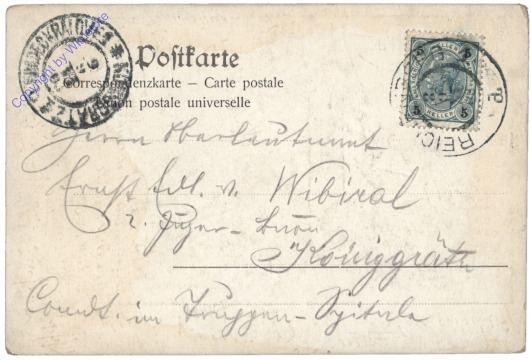 Postkarte
Correspondenzkarte – Carte postale
Union postale universelle
Copyright by W
KÖNIGGRÄTZ
5 5
5 HELLER 5
REIC
Herrn Oberleutnant
Ernst Edl. v. Wibiral
Königgrätz
Comdt. im Truppen-Spitale